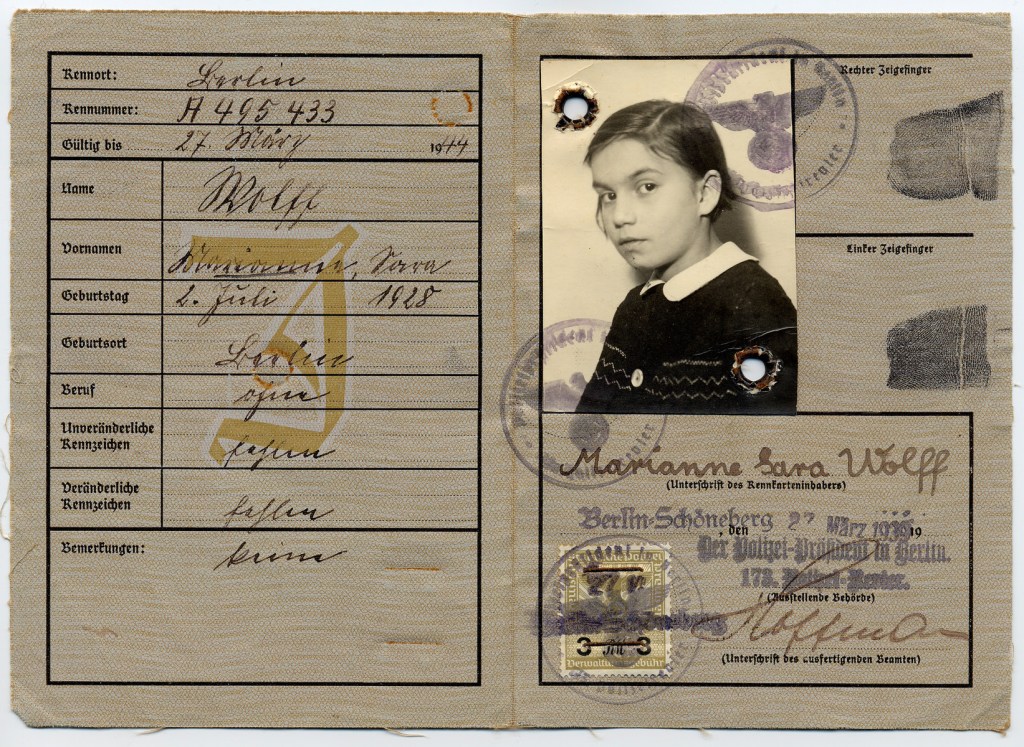 Kennort: Berlin
Kennummer: A 495 433
Gültig bis 27. März 1944
Name Wolff
Vornamen Marianne, Sara
Geburtstag 2. Juli 1928
Geburtsort Berlin
Beruf ohne
Unveränderliche Kennzeichen fehlen
Veränderliche Kennzeichen fehlen
Bemerkungen: keine
J
Rechter Zeigefinger
Linker Zeigefinger
Marianne Sara Wolff
(Unterschrift des Kennkarteninhabers)
Berlin-Schöneberg, den 27. März 1939 19
Der Polizei-Präsident in Berlin.
173. Polizei-Revier.
(Ausstellende Behörde)
(Unterschrift des ausfertigenden Beamten)
3 RM 3
Verwaltungsgebühr